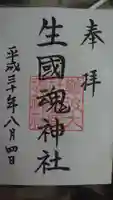 奉拝
生國魂神社
平成三十年八月四日